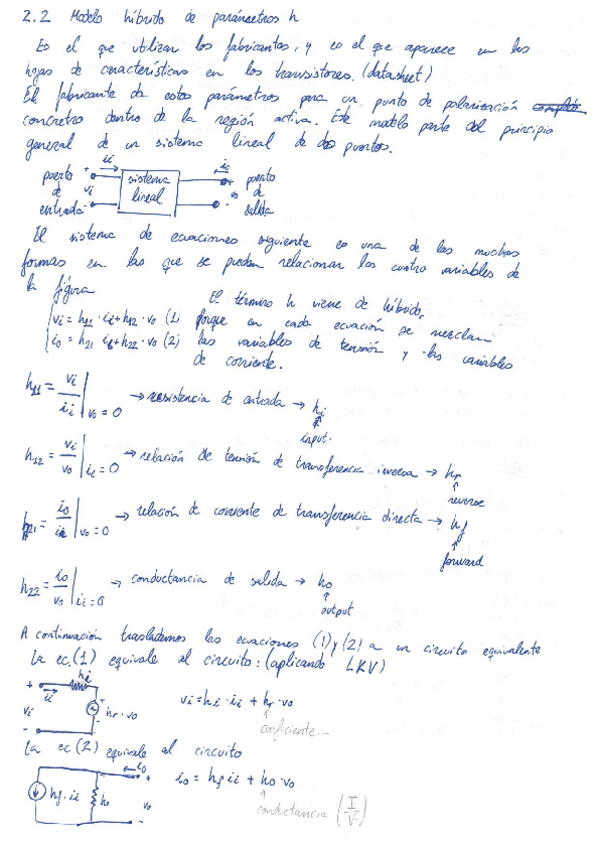 2.2 Modelo híbrido de parámetros h
Es el que utilizan los fabricantes, y es el que aparece en las
hojas de características en los transistores. (datasheet)
El fabricante da estos parámetros para un punto de polarización
concreto dentro de la región activa. Este modelo parte del principio
general de un sistema lineal de dos puertos.
puerto de entrada + vi - ii sistema lineal io + vo - puerto de salida
El sistema de ecuaciones siguiente es una de las muchas
formas en las que se pueden relacionar las cuatro variables de
la figura
vi = h11 · ii + h12 · vo (1)
io = h21 ii + h22 · vo (2)
El término h viene de híbrido,
porque en cada ecuación se mezclan
las variables de tensión y las variables
de corriente.
h11 = vi/ii | vo = 0 → resistencia de entrada → hi
input.
h12 = vi/vo | ii = 0 → relación de tensión de transferencia inversa → hr
reverse
h21 = io/ii | vo = 0 → relación de corriente de transferencia directa → hf
forward
h22 = io/vo | ii = 0 → conductancia de salida → ho
output
A continuación trasladamos las ecuaciones (1) y (2) a un circuito equivalente
La ec.(1) equivale al circuito: (aplicando LKV)
+ ii hi vi - hr · vo
vi = hi · ii + hr · vo
coeficiente
La ec (2) equivale al circuito
hf · ii ho io + vo -
io = hf ii + ho · vo
conductancia (I/V)